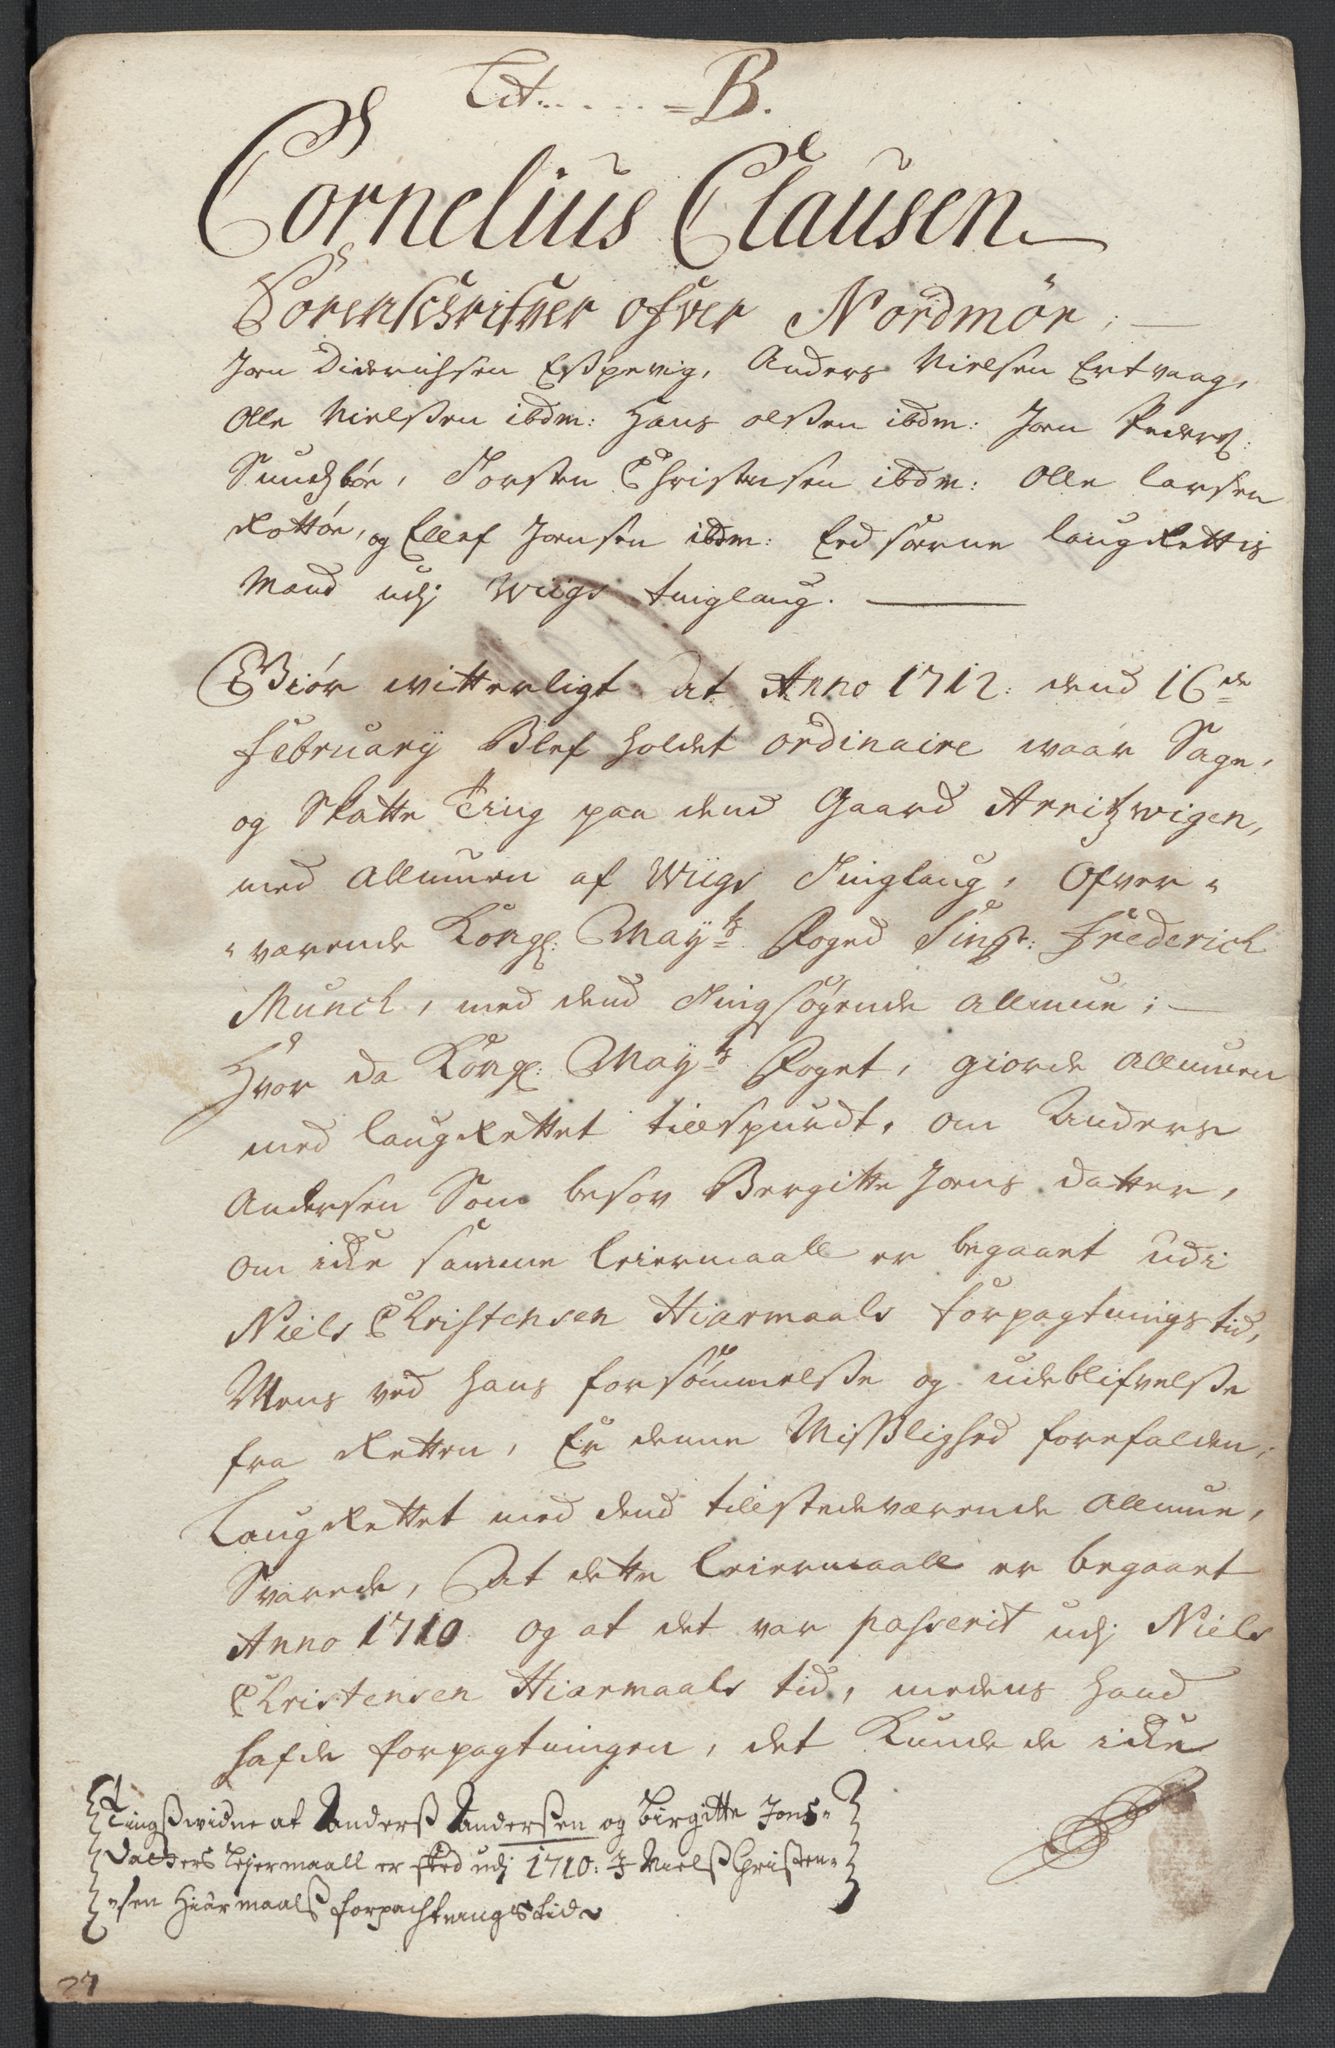 Lit. . . . . = B.
Cornelius Clausen
Sorenschrifver ofver Nordmør;
Jon Diderichsen Espevig, Anders Nielsen Ertvaag,
Olle Nielsen ibdm: Hans Olsen ibdm: Jon Peders:
Sundsbøe, Torsten Christensen ibdm: Olle Larsen
Rottøe, og Ellef Jonsen ibdm: Eedsorne Laug Rettis
Mænd udj Wiigs tinglaug.
Giør witterligt at Anno 1712: dend 16de
February Blef holdet ordinaire waar Sage,
og Skatte Ting paa dend Gaard Arnitzwigen,
med Allmuen af Wiigs Tinglaug, Ofver-
-værende Kongl: May.ts Foged Sing.r: Frederich
Munch, med dend Tingsøgende Allmue;
Hvor da Kongl: May.ts Foget, giorde Allmuen
med LaugRettet tillspurdt, om Anders
Andersen Som besov Bergitte Jons datter,
om icke samme Leiermaall er begaaet udi
Niels Christensen Hiermaals forpagtnings tid,
Mens ved hans forsømmelse og udeblifvelse
fra Retten, Er denne Misslighed forefalden;
LaugRettet med dend tillstedeværende Allmue,
Svarede, At dette Leiermaall er begaaet
Anno 1710 og at det var passerit udj Niels
Christensen Hiermaals tid, medens hand
hafde forpagtningen, det Kunde de icke
Tingswidne at Anders Andersen og Birgitte Jons-
Datters Lejermaall er sked udj 1710: J Niels Christen-
-sen Hiærmaals forpachtnings tid
27